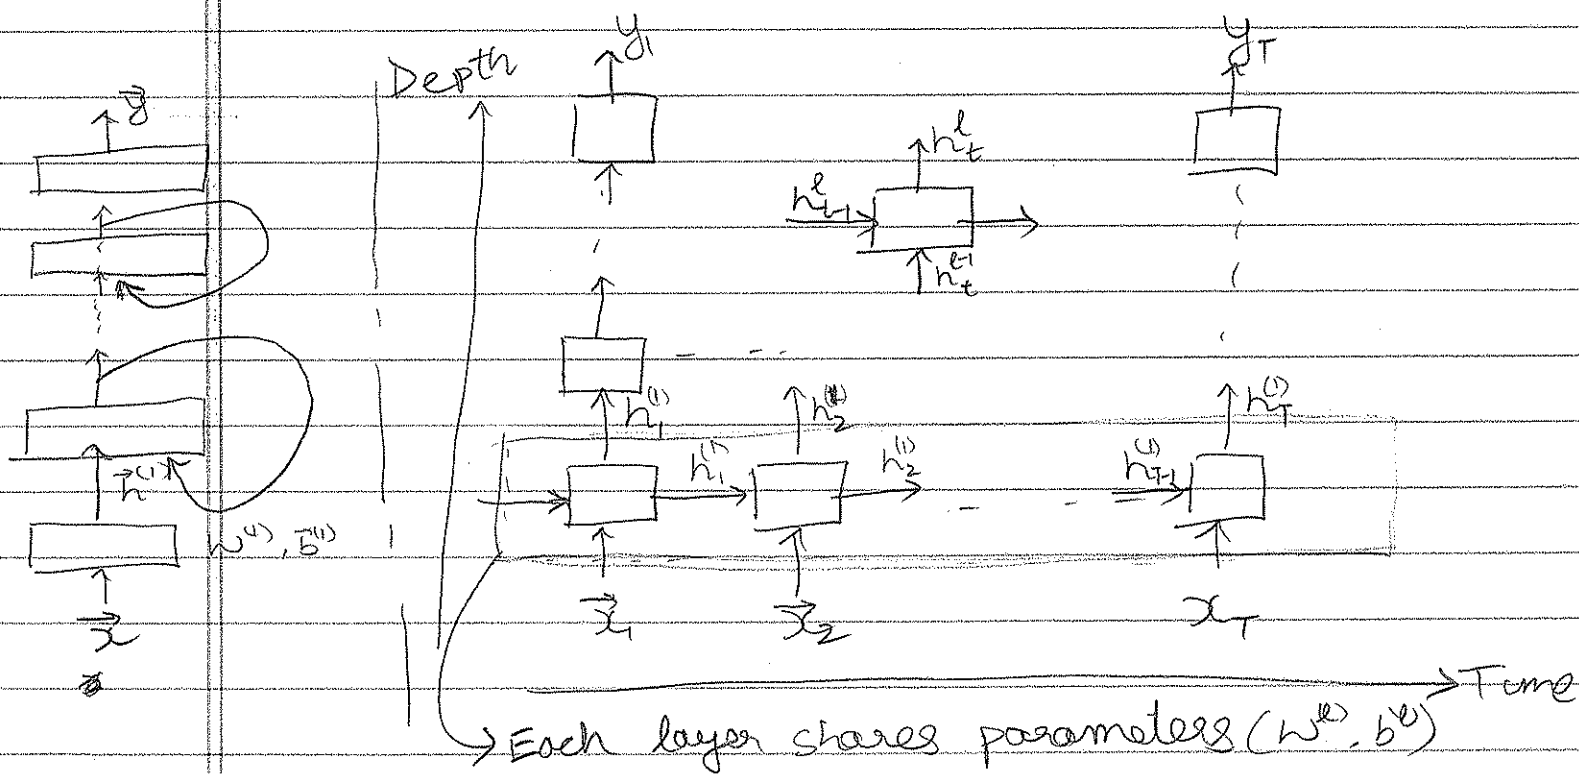 y⃗
h⃗⁽¹⁾
W⁽¹⁾, b⃗⁽¹⁾
x⃗
Depth
y₁
y_T
h_t^l
h_{t-1}^l
h_t^{l-1}
h₁⁽¹⁾
h₂⁽¹⁾
h_T⁽¹⁾
h₁⁽¹⁾
h₂⁽¹⁾
h_{T-1}⁽¹⁾
x⃗₁
x⃗₂
x_T
Time
Each layer shares parameters (W⁽ˡ⁾, b⁽ˡ⁾)